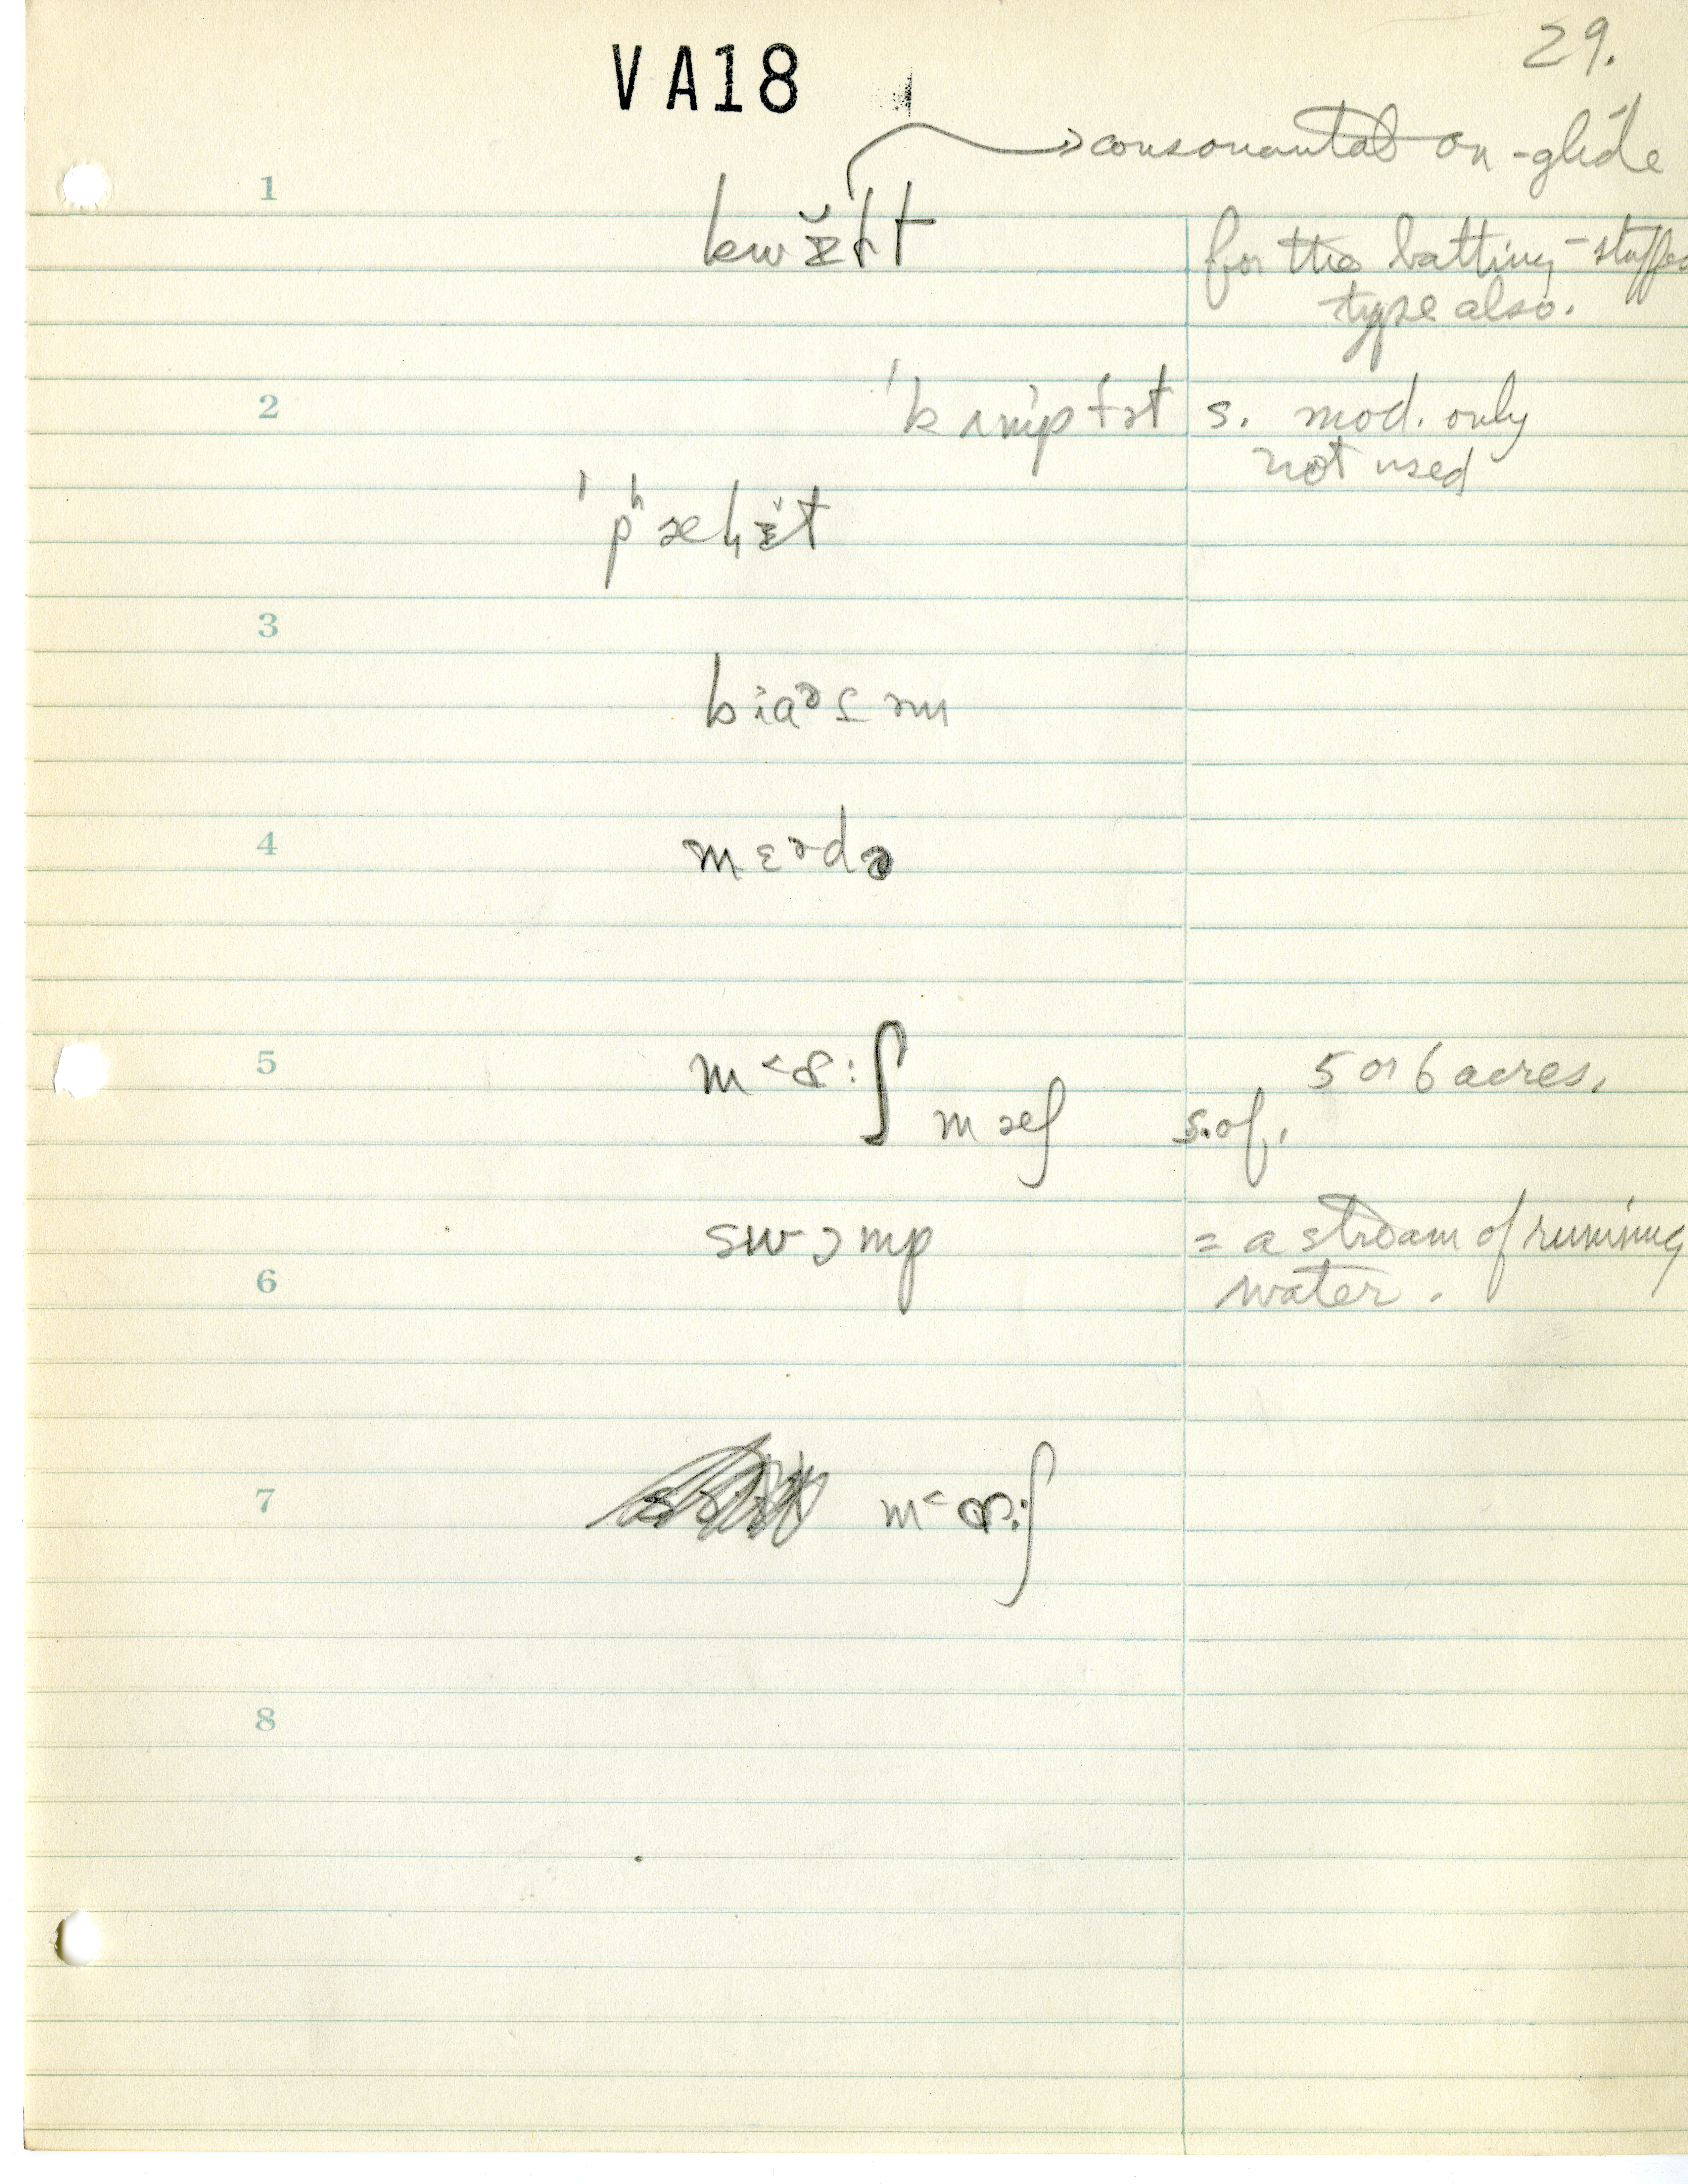 VA18
29.
→ consonantal on-glide
1
kwɪ̆ɫt
for the batting-stuffed
type also.
2
ˈkʌmpfɚt s. mod. only
not used
ˈpʰælɪ̆t
3
4
mɛɚdə
5
m˂ɒ:ʃ 5 or 6 acres.
mæʃ s. of.
swɔmp = a stream of running
6
water.
7
m˂ɒ:ʃ
8